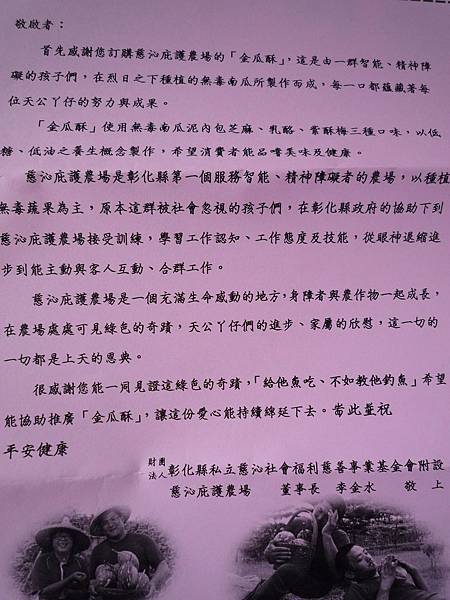 敬啟者：
首先感謝您訂購慈沁庇護農場的「金瓜酥」，這是由一群智能、精神障
礙的孩子們，在烈日之下種植的無毒南瓜所製作而成，每一口都蘊藏著每
位天公丫仔的努力與成果。
「金瓜酥」使用無毒南瓜泥內包芝麻、乳酪、紫酥梅三種口味，以低
糖、低油之養生概念製作，希望消費者能品嚐美味及健康。
慈沁庇護農場是彰化縣第一個服務智能、精神障礙者的農場，以種植
無毒蔬果為主，原本這群被社會忽視的孩子們，在彰化縣政府的協助下到
慈沁庇護農場接受訓練，學習工作認知、工作態度及技能，從眼神退縮進
步到能主動與客人互動、合群工作。
慈沁庇護農場是一個充滿生命感動的地方，身障者與農作物一起成長，
在農場處處可見綠色的奇蹟，天公丫仔們的進步、家屬的欣慰，這一切的
一切都是上天的恩典。
很感謝您能一同見證這綠色的奇蹟，「給他魚吃、不如教他釣魚」希望
能協助推廣「金瓜酥」，讓這份愛心能持續綿延下去。當此並祝
平安健康
財團法人彰化縣私立慈沁社會福利慈善事業基金會附設
慈沁庇護農場 董事長 李金水 敬 上